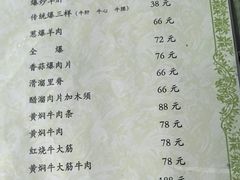 爆炒羊肝 38 元
传统爆三样（牛肝 牛心 牛腰） 66 元
葱爆羊肉 72 元
全爆 76 元
香蒜爆肉片 66 元
滑溜里脊 76 元
醋溜肉片加木须 88 元
黄焖牛肉条 78 元
黄焖牛肉 78 元
红烧牛大筋 78 元
黄焖牛大筋牛肉
188 元